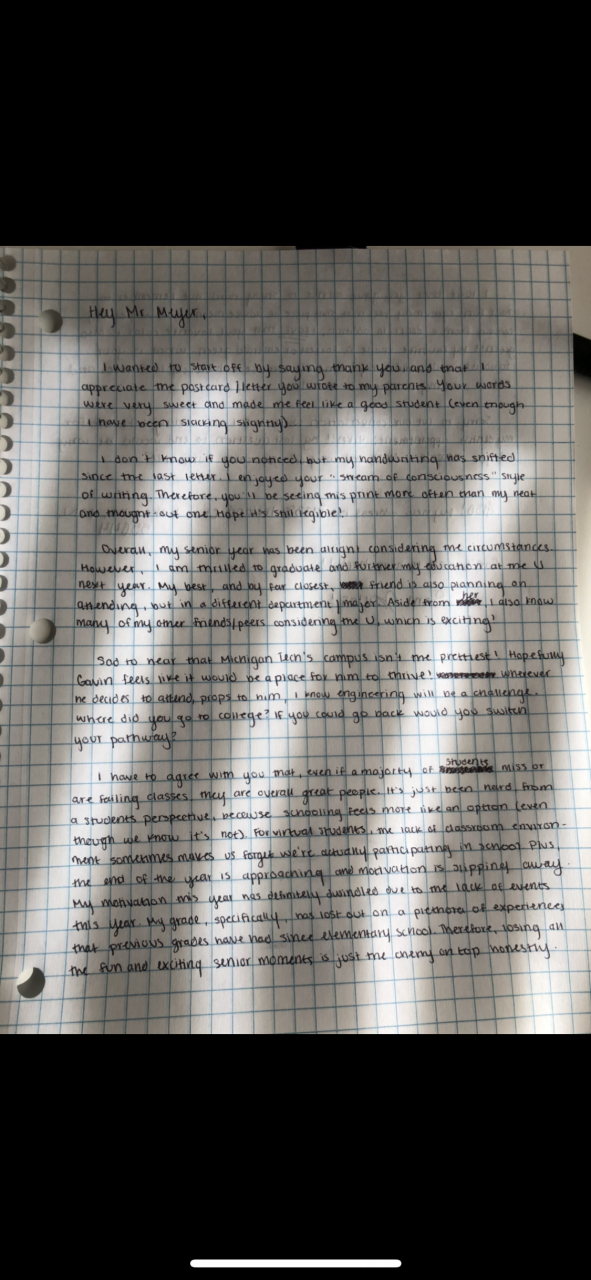 Hey Mr. Meyer,
I wanted to start off by saying thank you, and that I
appreciate the postcard/letter you wrote to my parents. Your words
were very sweet and made me feel like a good student (even enough
I have been slacking slightly).
I don't know if you noticed, but my handwriting has shifted
since the last letter. I enjoyed your "stream of consciousness" style
of writing. Therefore, you'll be seeing this print more often than my neat
and thought-out one. Hope it's still legible!
Overall, my senior year has been alright considering the circumstances.
However, I am thrilled to graduate and further my education at the U
next year. My best, and by far closest, friend is also planning on
attending, but in a different department/major. Aside from her, I also know
many of my other friends/peers considering the U, which is exciting!
Sad to hear that Michigan Tech's campus isn't the prettiest! Hopefully
Gavin feels like it would be a place for him to thrive! wherever
he decides to attend, props to him, I know engineering will be a challenge.
Where did you go to college? If you could go back would you switch
your pathway?
I have to agree with you that, even if a majority of students miss or
are failing classes, they are overall great people. It's just been hard, from
a students perspective, because schooling feels more like an option (even
though we know it's not). For virtual students, the lack of classroom environ-
ment sometimes makes us forget we're actually participating in school. Plus,
the end of the year is approaching and motivation is slipping away.
My motivation this year has definitely dwindled due to the lack of events
this year. My grade, specifically, has lost out on a plethora of experiences
that previous grades have had since elementary school. Therefore, losing all
the fun and exciting senior moments is just the cherry on top honestly.